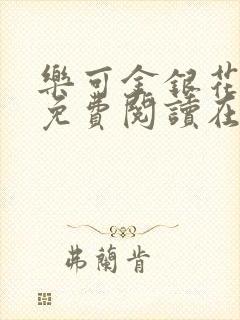 樂可金銀花
免費閱讀在
弗蘭肯